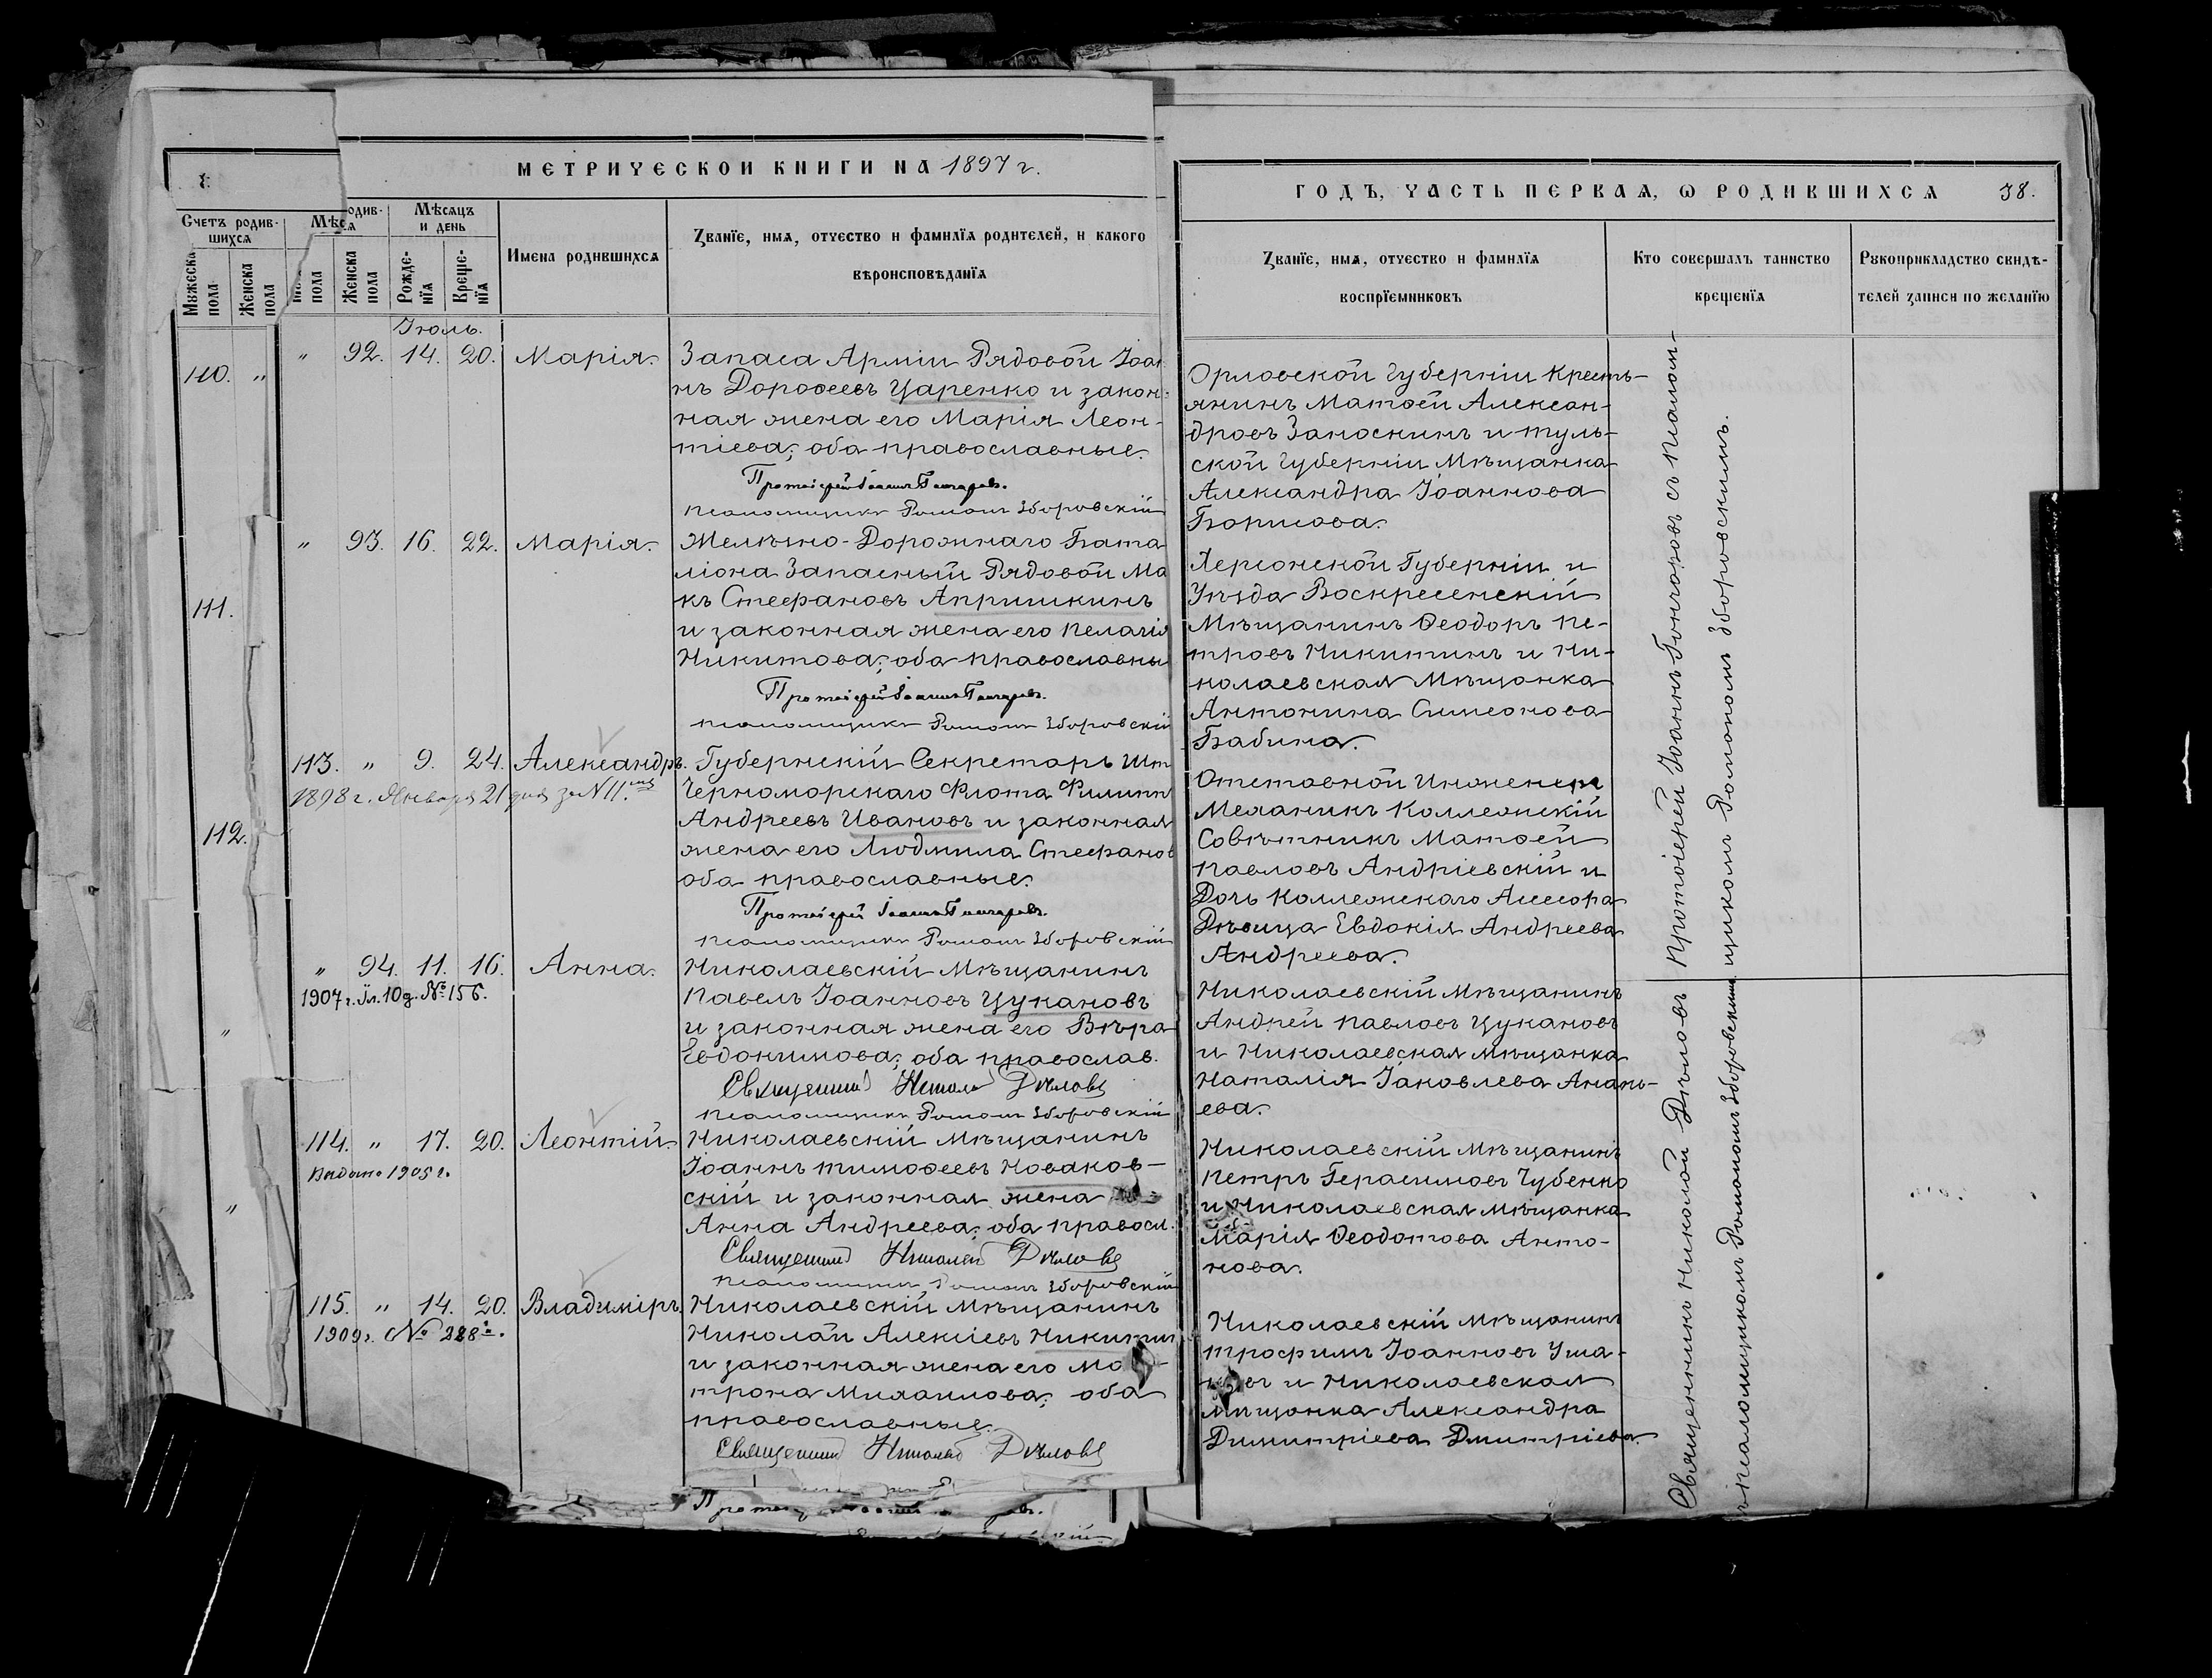 МЕТРИЧЕСКОЙ КНИГИ НА 1897 г.
Счетъ родив-
шихся
Мѣся
одив-
Мѣсяцъ
и день
Мужеска
пола
Женска
пола
пола
Женска
пола
Рожде-
нїя
Креще-
нїя
Имена родившихся
Званїе, имя, отчество и фамилїя родителей, и какого
вѣроисповѣданїя
Іюль.
110. "
" 92. 14. 20. Марія.
Запаса Арміи Рядовой Іоан
нъ Дороѳеевъ Царенко и закон-
ная жена его Марія Леон-
тіева; оба православные.
Протоіерей Іоаннъ Гончаровъ.
псаломщикъ Романъ Зборовскій
" 93. 16. 22. Марія.
Желѣзно-Дорожнаго Бата
ліона Запасный Рядовой Ма
къ Стефановъ Апришкинъ
и законная жена его Пелагія
Никитова; оба православны
Протоіерей Іоаннъ Гончаровъ.
псаломщикъ Романъ Зборовскій
111.
113. " 9. 24. Александръ.
1898 г. Января 21 дня за N 11.
Губернскій Секретарь Шт
Черноморскаго Флота Филипп
Андреевъ Ивановъ и законная
жена его Людмила Стефанов
оба православные.
Протоіерей Іоаннъ Гончаровъ.
псаломщикъ Романъ Зборовскій
112.
" 94. 11. 16. Анна.
1907 г. Іл. 10 д. № 156.
Николаевскій Мѣщанинъ
Павелъ Іоанновъ Цукановъ
и законная жена его Вѣра
Евдокимова; оба православ.
Священникъ Николай Дѣловъ
псаломщикъ Романъ Зборовскій
"
114. " 17. 20. Леонтій.
Выдано 1905 г.
Николаевскій Мѣщанинъ
Іоаннъ Тимоѳеевъ Новаков-
скій и законная жена
Анна Андреева; оба правосл.
Священникъ Николай Дѣловъ
псаломщикъ Романъ Зборовскій
"
115. " 14. 20. Владиміръ.
1909 г. № 228
Николаевскій Мѣщанинъ
Николай Алексіевъ Никитин
и законная жена его Ма
трона Михаилова; оба
православные.
Священникъ Николай Дѣловъ
ГОДЪ, ЧАСТЬ ПЕРВАЯ, Ѡ РОДИВШИХСЯ 38.
Званїе, имя, отчество и фамилїя
воспрїемниковъ
Кто совершалъ таинство
крещенїя
Рукоприкладство свидѣ-
телей записи по желанїю
Орловской Губерніи Кресть-
янинъ Матѳей Алексан-
дровъ Заноскинъ и Туль-
ской Губерніи Мѣщанка
Александра Іоаннова
Борисова.
Херсонской Губерніи и
Уѣзда Воскресенскій
Мѣщанинъ Ѳеодоръ Пе-
тровъ Никитинъ и Ни-
колаевская Мѣщанка
Антонина Симеонова
Бабина.
Отставной Инженеръ
Механикъ Коллежскій
Совѣтникъ Матѳей
Павловъ Андріевскій и
Дочь Коллежскаго Ассесора
Дѣвица Евдокія Андреева
Андреева.
Николаевскій Мѣщанинъ
Андрей Павловъ Цукановъ
и Николаевская мѣщанка
Наталія Іаковлева Анань-
ева.
Николаевскій Мѣщанинъ
Петръ Герасимовъ Чубенко
и Николаевская мѣщанка
Марія Ѳеодотова Анто-
нова.
Николаевскій Мѣщанинъ
Трофимъ Іоанновъ Ума-
и Николаевская
мѣщанка Александра
Димитріева Дмитріева.
Протоіерей Іоаннъ Гончаровъ съ псалом-
щикомъ Романомъ Зборовскимъ.
Священникъ Николай Дѣловъ
съ псаломщикомъ Романомъ Зборовскимъ